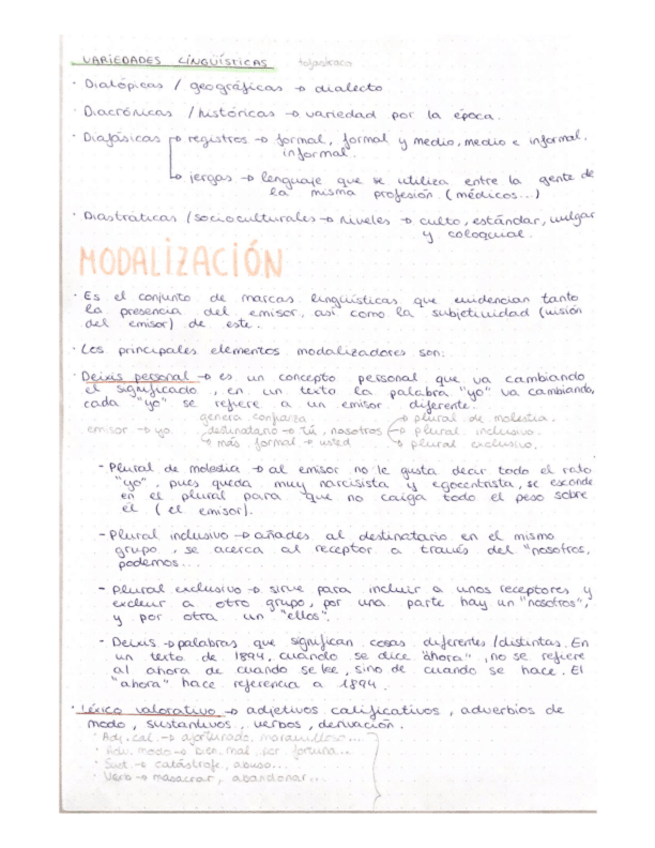 VARIEDADES LINGÜÍSTICAS
· Diatópicas / geográficas → dialecto
· Diacrónicas / históricas → variedad por la época.
· Diafásicas → registros → formal, formal y medio, medio e informal.
informal.
→ jergas → lenguaje que se utiliza entre la gente de
la misma profesión (médicos...)
· Diastráticas / socioculturales → niveles → culto, estándar, vulgar
y coloquial.
MODALIZACIÓN
· Es el conjunto de marcas lingüísticas que evidencian tanto
la presencia del emisor, así como la subjetividad (visión
del emisor) de este.
· Los principales elementos modalizadores son:
· Deixis personal → es un concepto personal que va cambiando
el significado, en un texto la palabra "yo" va cambiando,
cada "yo" se refiere a un emisor diferente.
genera confianza → plural de molestia.
emisor → yo destinatario → tú, nosotros → plural inclusivo.
→ más formal → usted → plural exclusivo.
- Plural de molestia → al emisor no le gusta decir todo el rato
"yo", pues queda muy narcisista y egocentrista, se esconde
en el plural para que no caiga todo el peso sobre
él (el emisor).
- Plural inclusivo → añades al destinatario en el mismo
grupo, se acerca al receptor a través del "nosotros,
podemos...
- Plural exclusivo → sirve para incluir a unos receptores y
excluir a otro grupo, por una parte hay un "nosotros",
y por otra un "ellos".
- Deixis → palabras que significan cosas diferentes / distintas. En
un texto de 1894, cuando se dice "ahora", no se refiere
al ahora de cuando se lee, sino de cuando se hace. El
"ahora" hace referencia a 1894.
· Léxico valorativo → adjetivos calificativos, adverbios de
modo, sustantivos, verbos, derivación.
· Adj. cal. → afortunado, maravilloso...
· Adv. modo → bien, mal, por fortuna...
· Sust. → catástrofe, abuso...
· Verb → masacrar, abandonar...